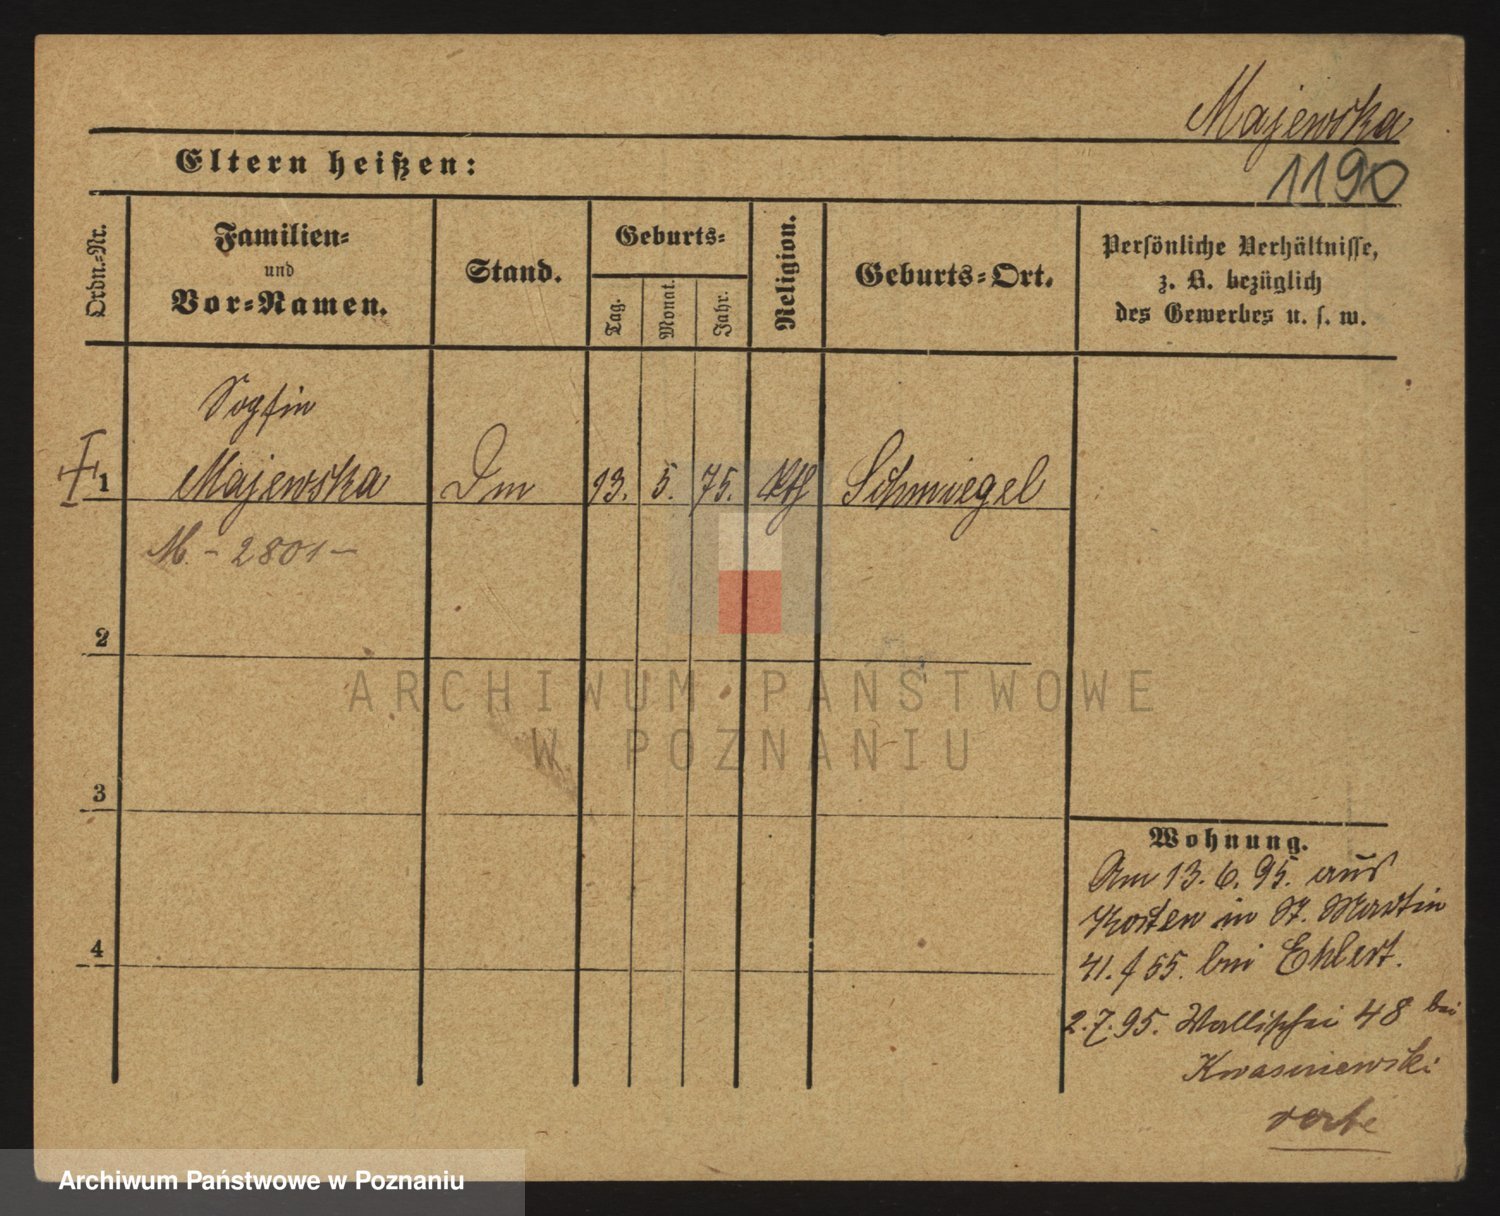 Majewska
1190
Eltern heißen:
Ordn.-Nr.
Familien-
und
Vor-Namen.
Stand.
Geburts-
Tag.
Monat.
Jahr.
Religion.
Geburts-Ort.
Persönliche Verhältnisse,
z. B. bezüglich
des Gewerbes u. s. w.
Sophie
1 Majewska 13. 5. 75. kth Schmiegel
M. - 2801 -
2
3
4
ARCHIWUM PAŃSTWOWE
W POZNANIU
Wohnung.
Am 13. 6. 95. aus
Kosten in St. Martin
bei Ehlert.
2.7.95. Wallischei 48 bei
Kwasniewski
Archiwum Państwowe w Poznaniu